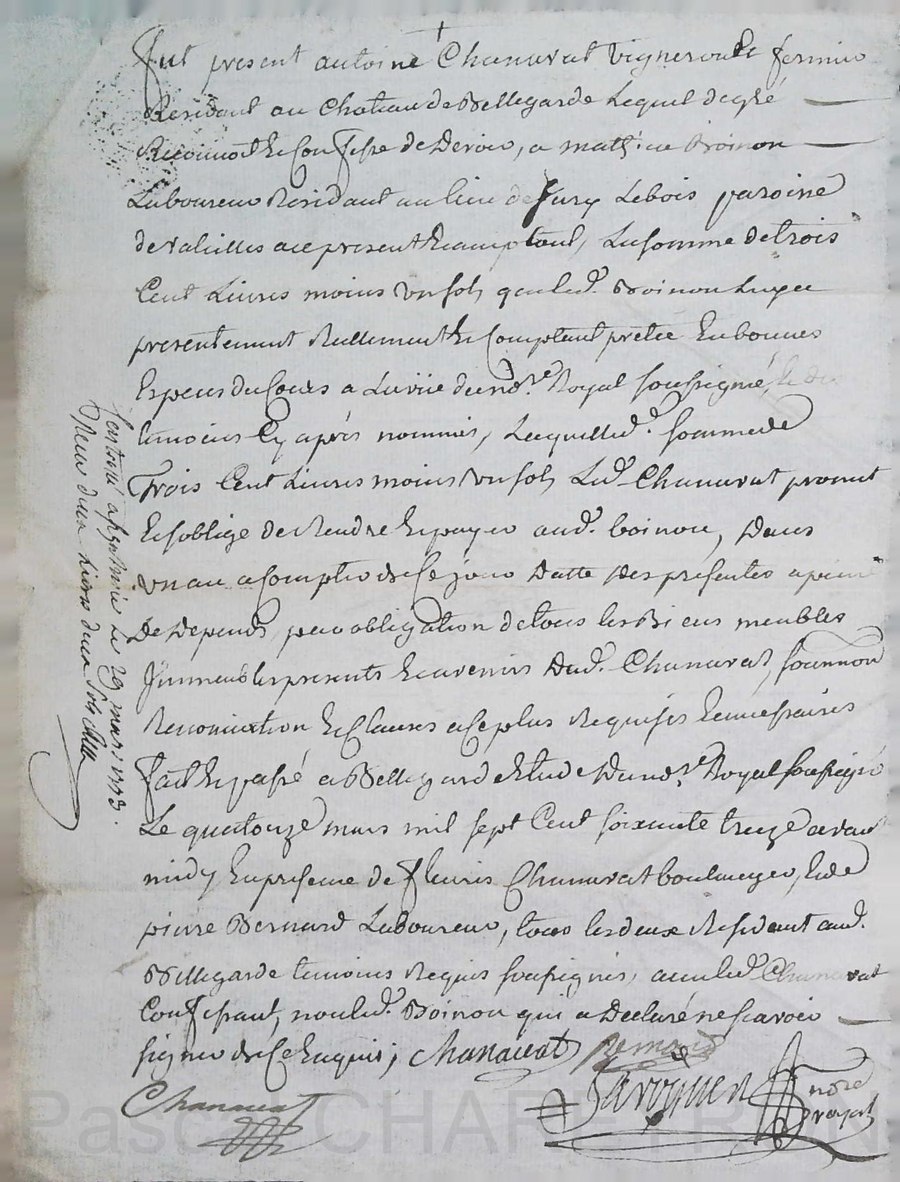 fut present antoine Chanavat vigneron & fermier
Residant au Chateau de Bellegarde Lequel de gré
Reconnoit & Confesse de Devoir, a mathieu Boinon
Laboureur Residant au lieu de Jury Lebois paroisse
de valeilles ace present & acceptant, La somme de trois
Cent Livres moins un sols que led. Boinon Luy a
presentement Reellement & Comptant pretée En bonnes
Especes du Cours a La vüe du no.re Royal soussigné, & des
temoins Cy après nommés, Laquelle d. somme de
Trois Cent Livres moins un sols Led. Chanavat promet
& soblige de Rendre & payer aud. boinon, Dans
un an a Compter de Ce jour Datte des presentes a peine
De Depends, par obligation de tous les Biens meubles
Jmmeubles presents & avenirs Dud. Chanavat, soumission
Renonciation & Clauses ace plus Requises & necessaires
fait & passé a Bellegarde Etude Du no.re Royal soussigné
Le quatorze mars mil sept Cent soixante treize avant
midy En presence de fleuris Chanavat boulanger, & de
pierre Bernard Laboureur, tous les deux Residant aud.
Bellegarde temoins Requis soussignés, avec led. Chanavat
Confessant, non led. Boinon qui a Declaré ne scavoir
signer de Ce Enquis; Chanavat Bernard
Chanavat
no.re royal
Controlé a 29 mars 1773.
Reçu deux Livres deux sols
Pascal CHAPETRAIN